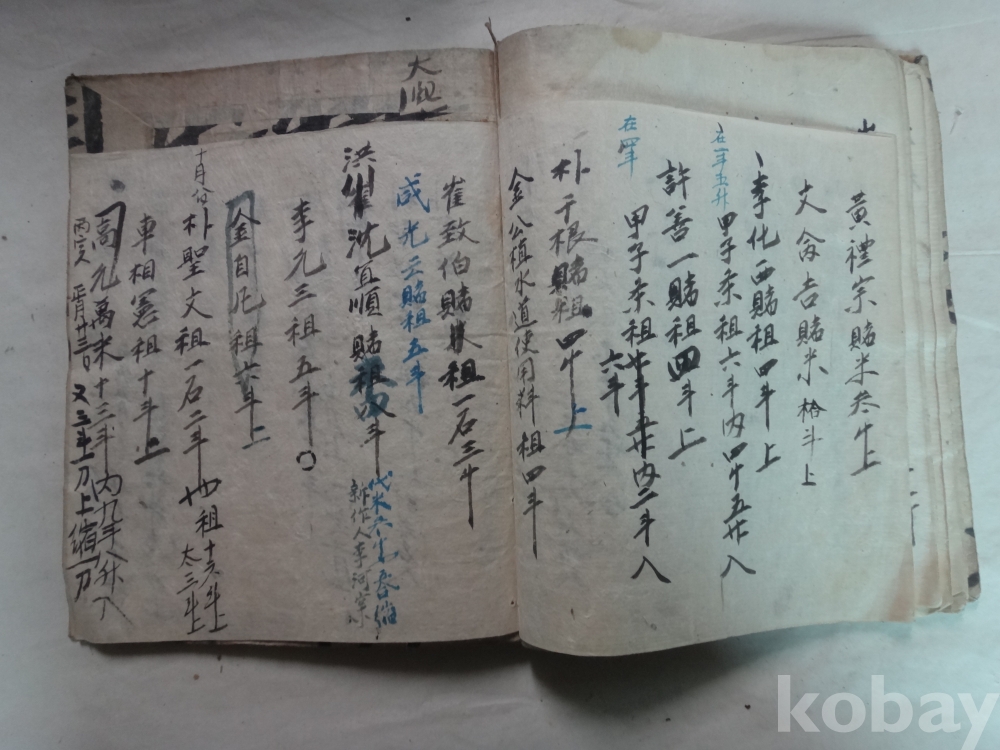 黃禮宗賭米叁斗上
文禽吉賭米拾斗上
李化西賭租四斗上
在一年五升
甲子条租六斗內四斗五升入
許善一賭租四斗上
在四年
甲子条租 內二斗入
六斗
朴千根賭租四斗上
金公植水道使用料租四斗
大
崔致伯賭租一石三斗
成光云賭租五斗
洪
沈宜順賭租四斗
代米六
新作人李河宗
李元三租五斗
金自凡租六斗上
十月分
朴聖文租一石二斗也租十六斗上
太三斗上
車相憲租十斗上
高元萬米十三斗內九斗八升入
又三斗一刀上 一刀
kobay